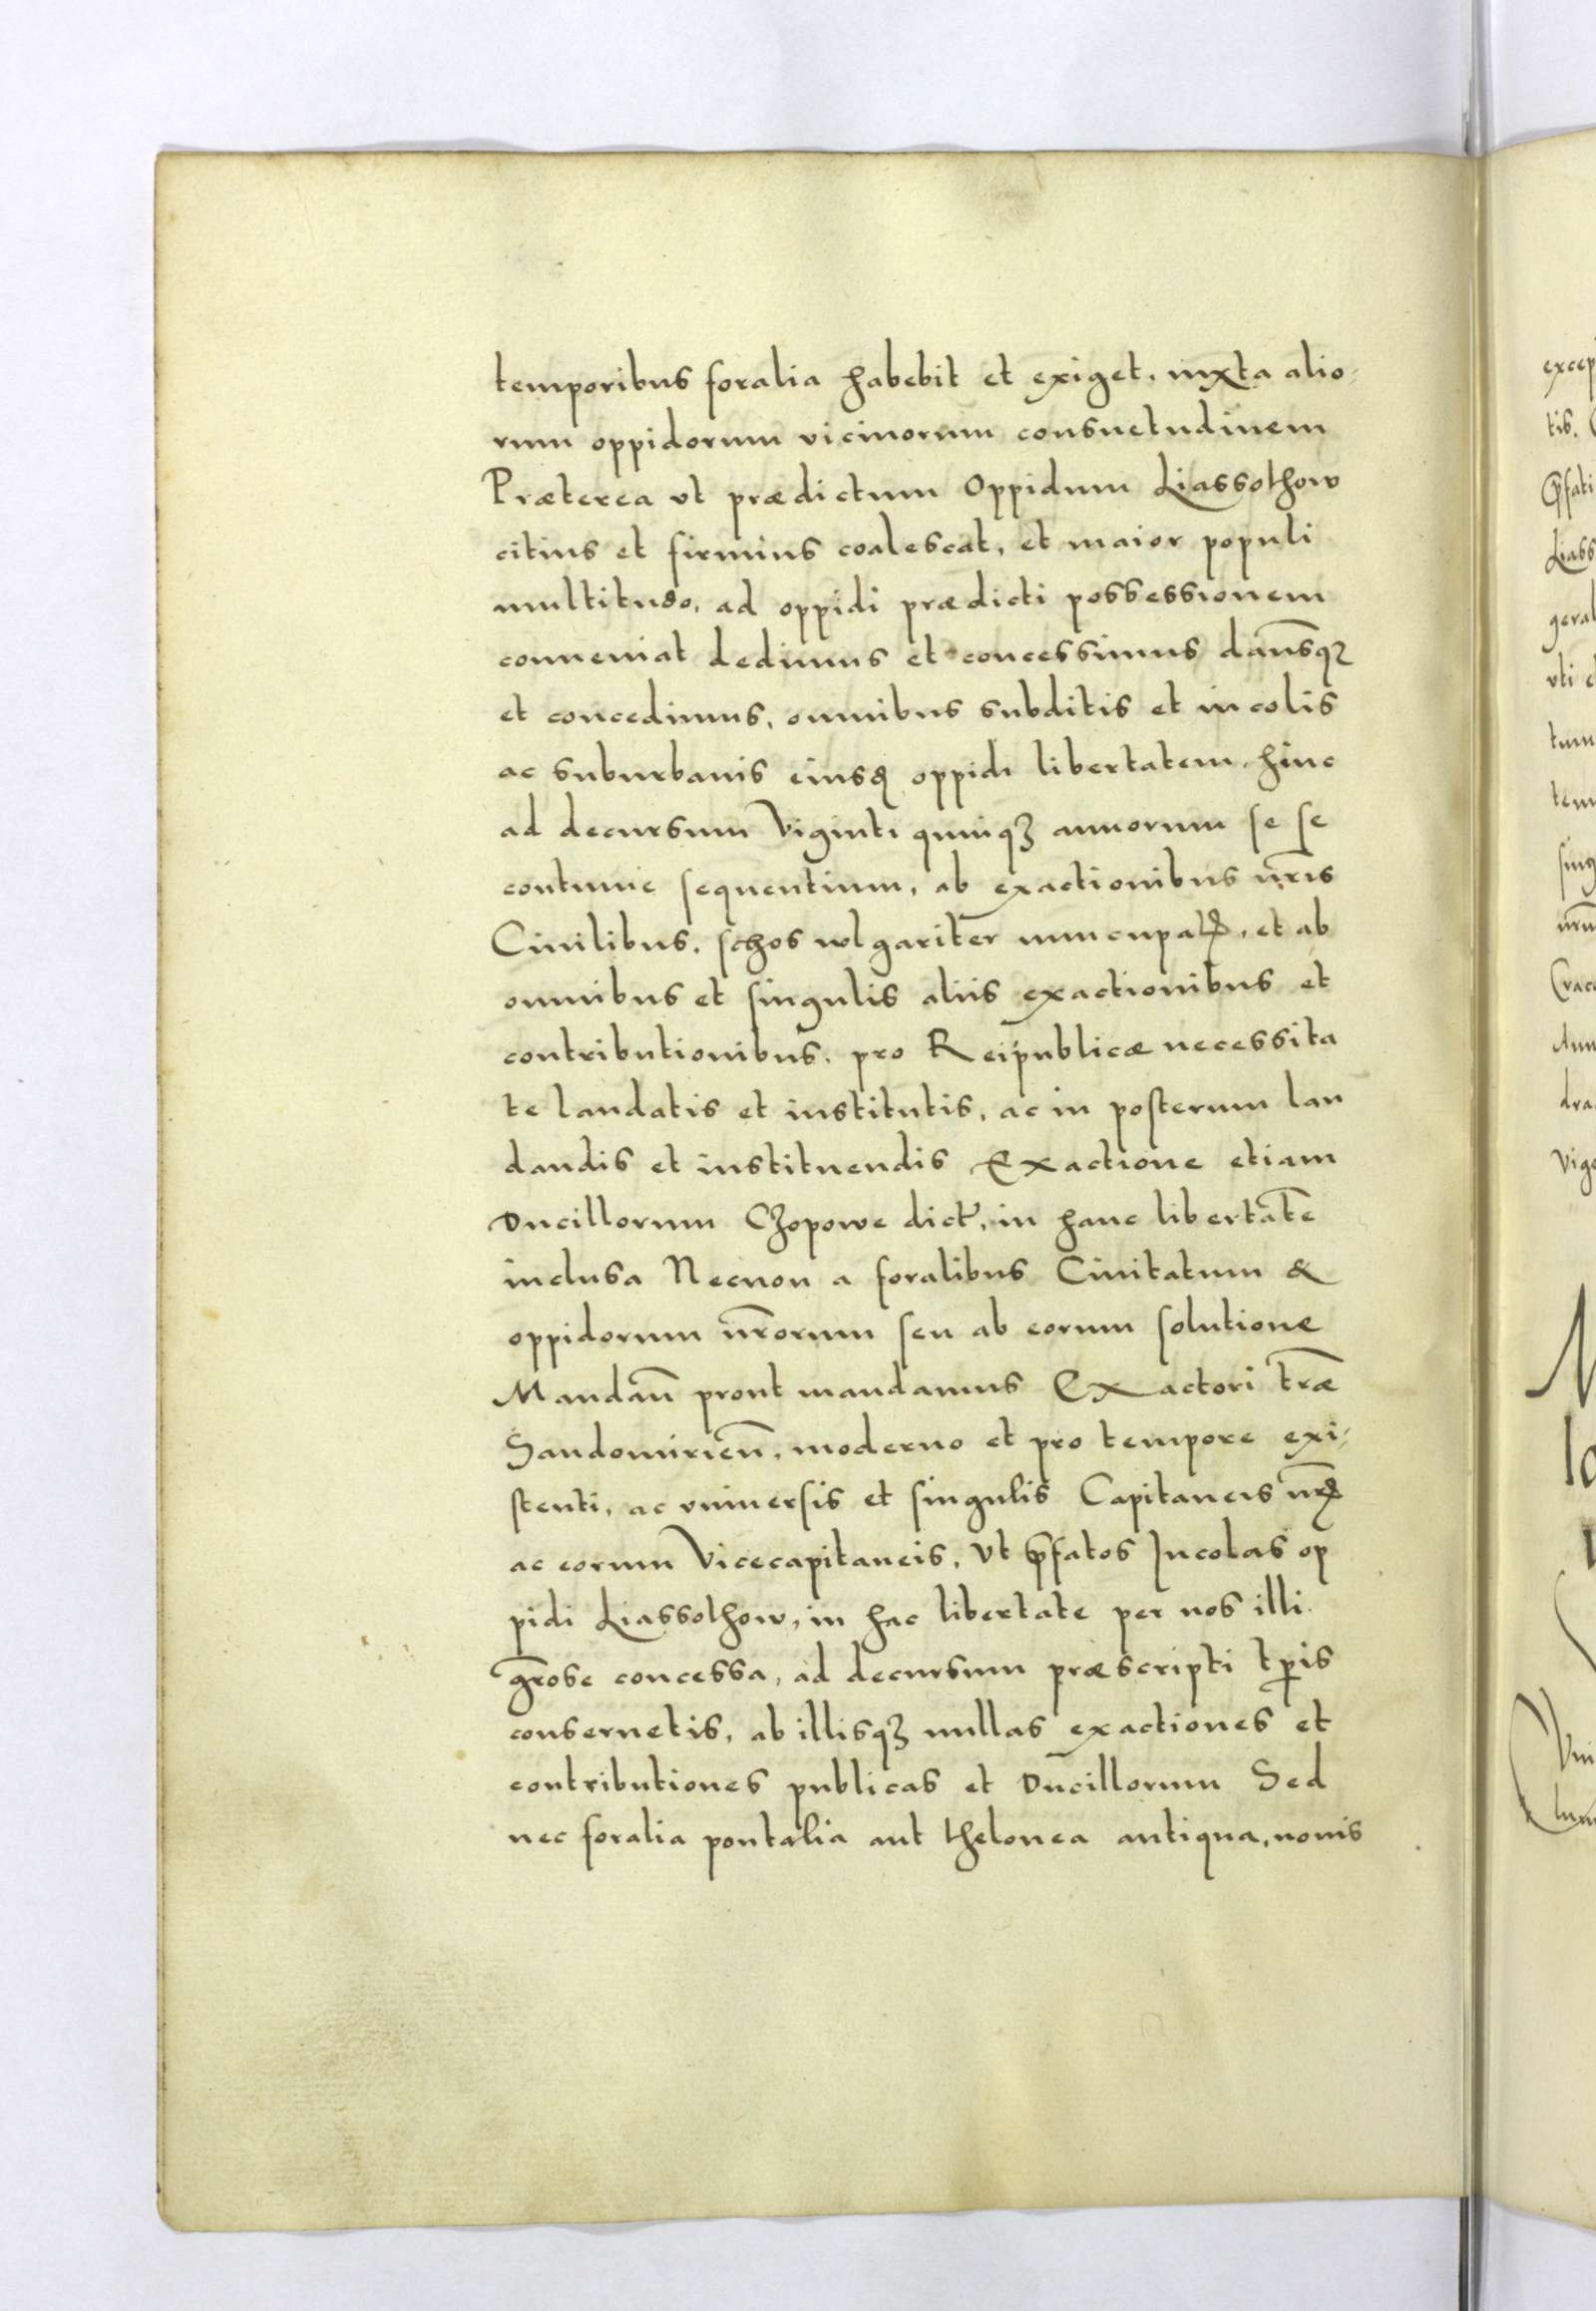 temporibus foralia habebit et exiget, iuxta alio-
rum oppidorum vicinorum consuetudinem
Præterea vt prædictum Oppidum Liassothow
citius et firmius coalescat, et maior populi
multitudo, ad oppidi prædicti possessionem
conueniat dedimus et concessimus dam̄sqꝫ
et concedimus, omnibus subditis et incolis
ac suburbanis eiusꝺ oppidi libertatem hinc
ad decursum Viginti quinqꝫ annorum se se
continue sequentium, ab exactionibus nr̄is
Ciuilibus, schos wlgariter nuncupatꝭ, et ab
omnibus et singulis aliis exactionibus et
contributionibus, pro Reipublicæ necessita
te laudatis et institutis, ac in posterum lau
dandis et instituendis Exactione etiam
Ducillorum Czopowe dict̄, in hanc libertatē
inclusa Necnon a foralibus Ciuitatum &
oppidorum nr̄orum seu ab eorum solutione
Mandan̄ prout mandamus Exactori tr̄æ
Sandomirien̄, moderno et pro tempore exi-
stenti, ac vniuersis et singulis Capitaneis nr̄ꝭ
ac eorum Vicecapitaneis, Vt p̄fatos Incolas op
pidi Liassothow, in hac libertate per nos illi
gr̄ose concessa, ad decursum præscripti tp̄is
conseruetis, ab illisqꝫ nullas exactiones et
contributiones publicas et Ducillorum Sed
nec foralia pontalia aut thelonea antiqua, nouis
excep
tis.
p̄fati
Liass
geral
vti
tum
tem
sing
nru
Crac
Ann
dra
Vige